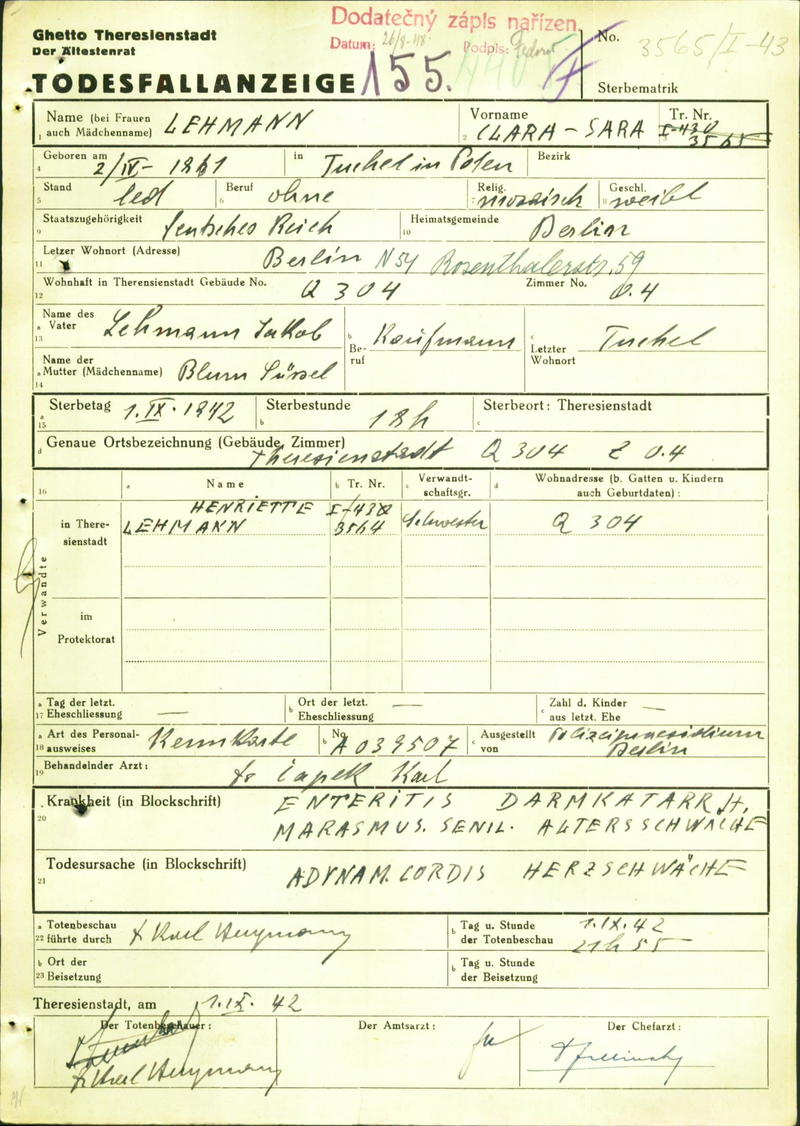 Ghetto Theresienstadt
Der Ältestenrat
TODESFALLANZEIGE
Dodatečný zápis nařízen.
Datum: 26/9-48 Podpis:
155.
No. 3565/I-43
Sterbematrik
Name (bei Frauen auch Mädchenname) LEHMANN
1
Vorname CLARA-SARA
2
Tr. Nr. I-430
3565
4 Geboren am 2/IV-1861 in Tuchel in Polen Bezirk
5 Stand led 6 Beruf ohne 7 Relig. mosaisch 8 Geschl. weibl
9 Staatszugehörigkeit Deutsches Reich 10 Heimatsgemeinde Berlin
11 Letzer Wohnort (Adresse) Berlin N54 Rosenthalerstr. 59
12 Wohnhaft in Therensienstadt Gebäude No. Q 304 Zimmer No. 0.4
13 a Name des Vater Lehmann Jakob b Beruf Kaufmann c Letzter Wohnort Tuchel
14 a Name der Mutter (Mädchenname) Blum
15 a Sterbetag 1.IX.1942 b Sterbestunde 18h c Sterbeort: Theresienstadt
d Genaue Ortsbezeichnung (Gebäude, Zimmer) Theresienstadt Q 304 Z 0.4
16 a Name b Tr. Nr. c Verwandtschaftsgr. d Wohnadresse (b. Gatten u. Kindern auch Geburtdaten):
Verwandte
in Theresienstadt
HENRIETTE I-430
LEHMANN 3564 Schwester Q 304
im Protektorat
17 a Tag der letzt. Eheschliessung — b Ort der letzt. Eheschliessung — c Zahl d. Kinder aus letzt. Ehe —
18 a Art des Personalausweises Kennkarte b No. A 039507 c Ausgestellt von Polizeipraesidium Berlin
19 Behandelnder Arzt: Dr Čapek Karl
20 Krankheit (in Blockschrift) ENTERITIS DARMKATARRH.
MARASMUS. SENIL. ALTERSSCHWÄCHE
21 Todesursache (in Blockschrift) ADYNAM. CORDIS HERZSCHWÄCHE
22 a Totenbeschau führte durch Dr Karl b Tag u. Stunde der Totenbeschau 1.IX.42
21h 55
23 b Ort der Beisetzung b Tag u. Stunde der Beisetzung
Theresienstadt, am 1.IX.42
Der Totenbeschauer: Der Amtsarzt: Der Chefarzt:
Dr Karl